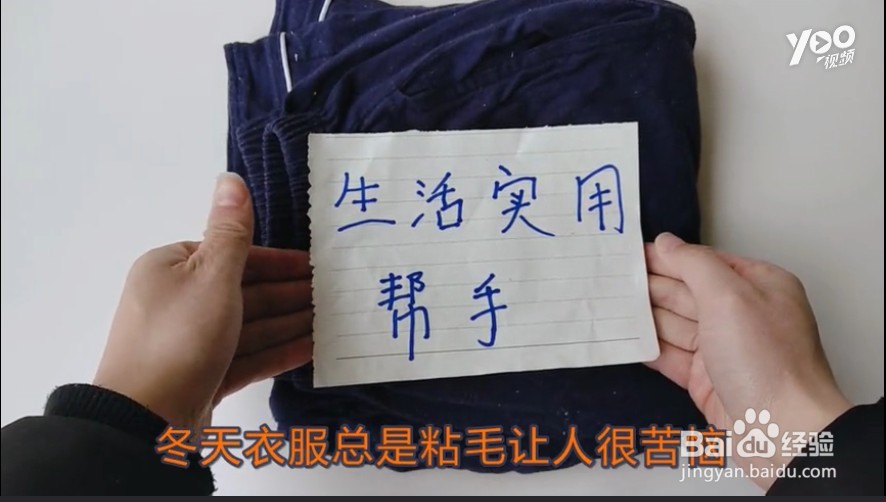 yoo
视频
生活实用
帮手
冬天衣服总是粘毛让人很苦恼
Baidu经验
jingyan.baidu.com